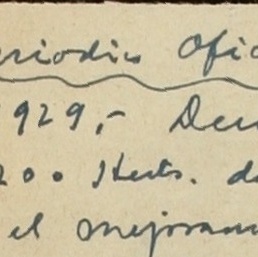 eriodico Ofic
1929,- Den
200 Hects. de
el mejoram